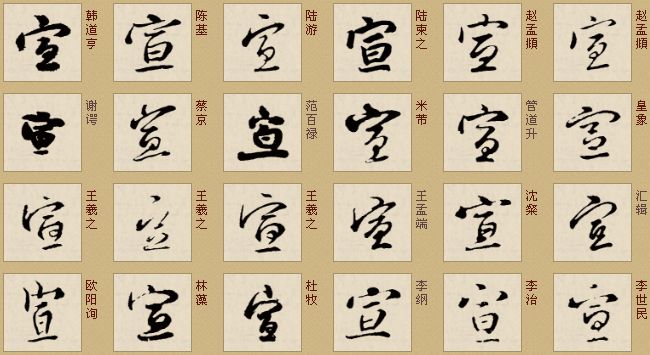 宣 韩道亨 宣 陈基 宣 陆游 宣 陆柬之 宣 赵孟頫 宣 赵孟頫
宣 谢谔 宣 蔡京 宣 范百禄 宣 米芾 宣 管道升 宣 皇象
宣 王羲之 宣 王羲之 宣 王羲之 宣 王孟端 宣 沈粲 宣 汇辑
宣 欧阳询 宣 林藻 宣 杜牧 宣 李纲 宣 李治 宣 李世民